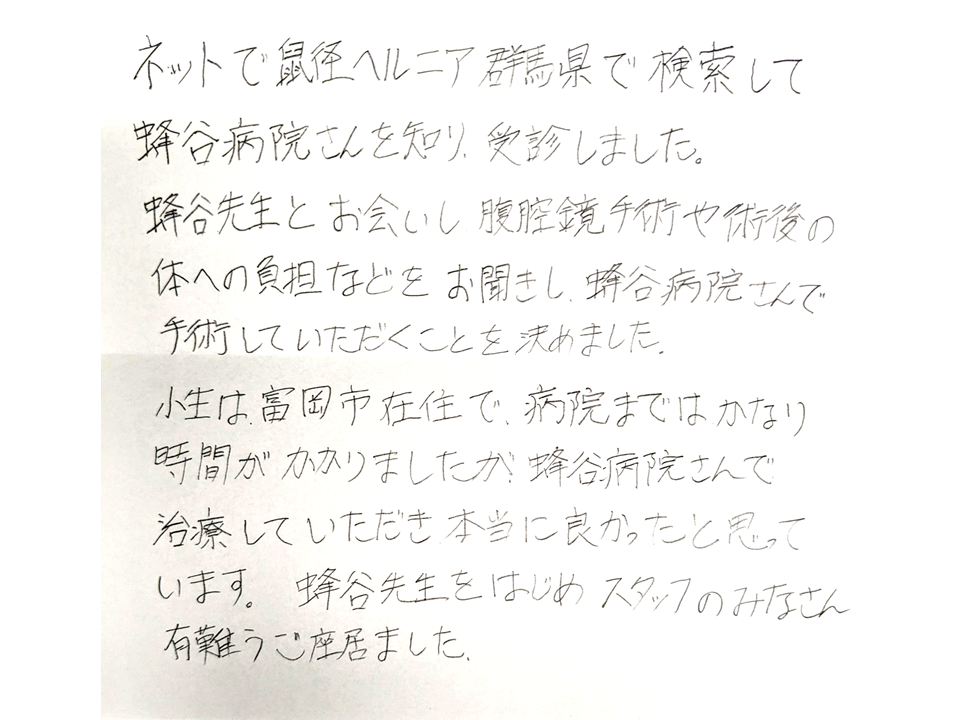 ネットで鼠径ヘルニア群馬県で検索して
蜂谷病院さんを知り、受診しました。
蜂谷先生とお会いし腹腔鏡手術や術後の
体への負担などをお聞きし、蜂谷病院さんで
手術していただくことを決めました。
小生は、富岡市在住で、病院まではかなり
時間がかかりましたが、蜂谷病院さんで
治療していただき本当に良かったと思って
います。蜂谷先生をはじめスタッフのみなさん
有難うご座居ました。